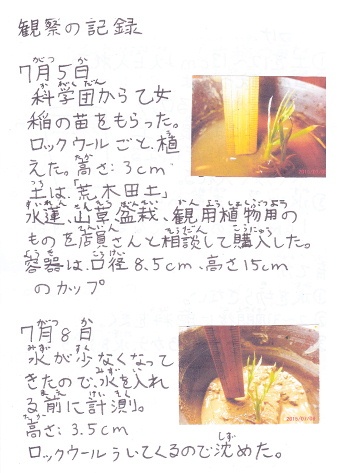 観察の記録
7月5日
科学団から乙女
稲の苗をもらった。
ロックウールごと、植
えた。高さ:3cm
土は、「荒木田土」
水蓮、山草盆栽、観用植物用の
ものを店員さんと相談して購入した。
容器は、口径8.5cm、高さ15cm
のカップ
7月8日
水が少なくなって
きたので、水を入れ
る前に計測。
高さ:3.5cm
ロックウールういてくるので沈めた。